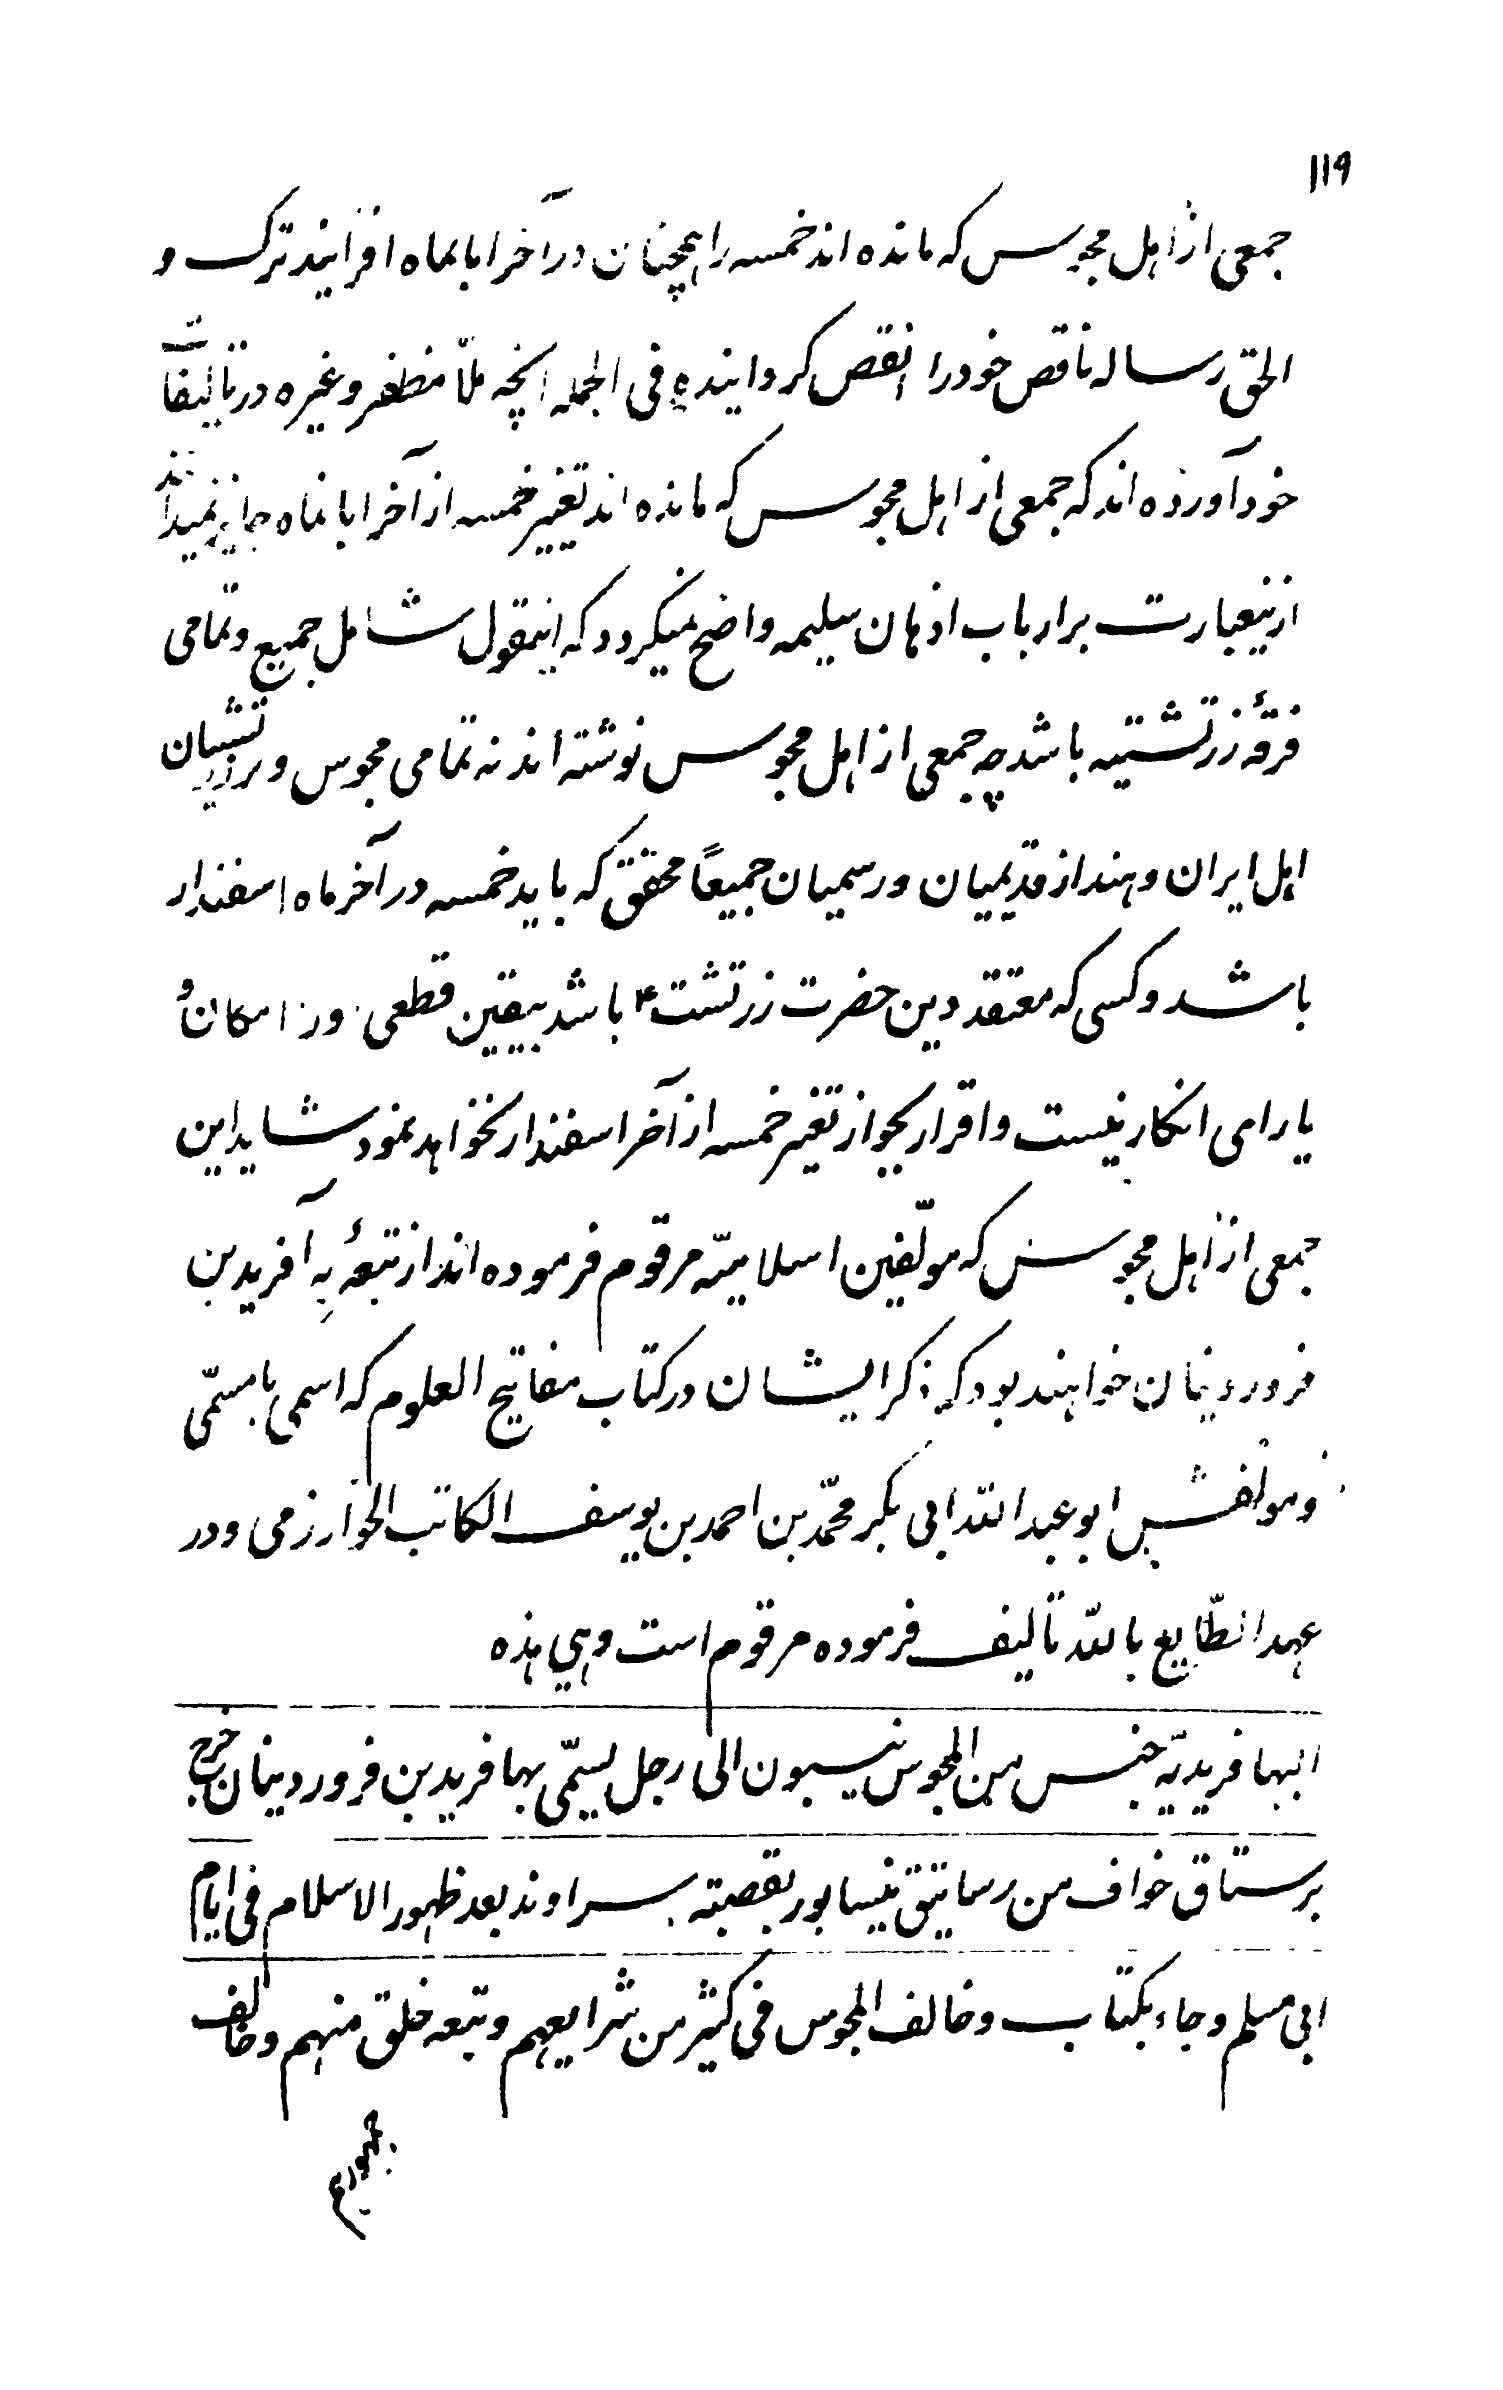 ۱۱۹
جمعی از اهل مجوس که مانده اند خمسه را همچنان در آخر ابانماه افزایند ترک و
الحق رساله ناقص خود را انقص کردانیده فی الجمله انچه ملّا مظفر و غیره در تالیفات
خود آورده اند که جمعی از اهل مجوس که مانده اند تغییر خمسه از آخر ابانماه جایز نمیدانند
ازینعبارت بر ارباب اذهان سلیمه واضح میکردد که اینقول شامل جمیع و تمامی
فرقهٔ زرتشتیه باشد چه جمعی از اهل مجوس نوشته اند نه تمامی مجوس و بر زرتشتیان
اهل ایران و هند از قدیمیان و رسمیان جمیعاً محقق که باید خمسه در آخر ماه اسفندار
باشد و کسی که معتقد دین حضرت زرتشت ۴ باشد بیقین قطعی ورا امکان و
یارای انکار نیست و اقرار بجواز تغیر خمسه از آخر اسفندار نخواهد نمود شاید این
جمعی از اهل مجوس که مولّفین اسلامیّه مرقوم فرموده اند از تبعهٔ بِه آفرید بن
فروردینان خواهند بود که ذکر ایشان در کتاب مفاتیح العلوم که اسمی با مسمّی
و مولفش ابو عبد الله ابی بکر محمّد بن احمد بن یوسف الکاتب الخوارزمی و در
عهد الطّایع بالله تالیف فرموده مرقوم است وهی هذه
البهافریدیّه جنس من المجوس ینسبون الی رجل یسمّی بهافرید بن فروردینان خرج
برستاق خواف من رساتیق نیسابور بقصبته سراوند بعد ظهور الاسلام فی ایام
ابی مسلم و جاء بکتاب وخالف المجوس فی کثیر من شرایعهم وتبعه خلق منهم وخالف